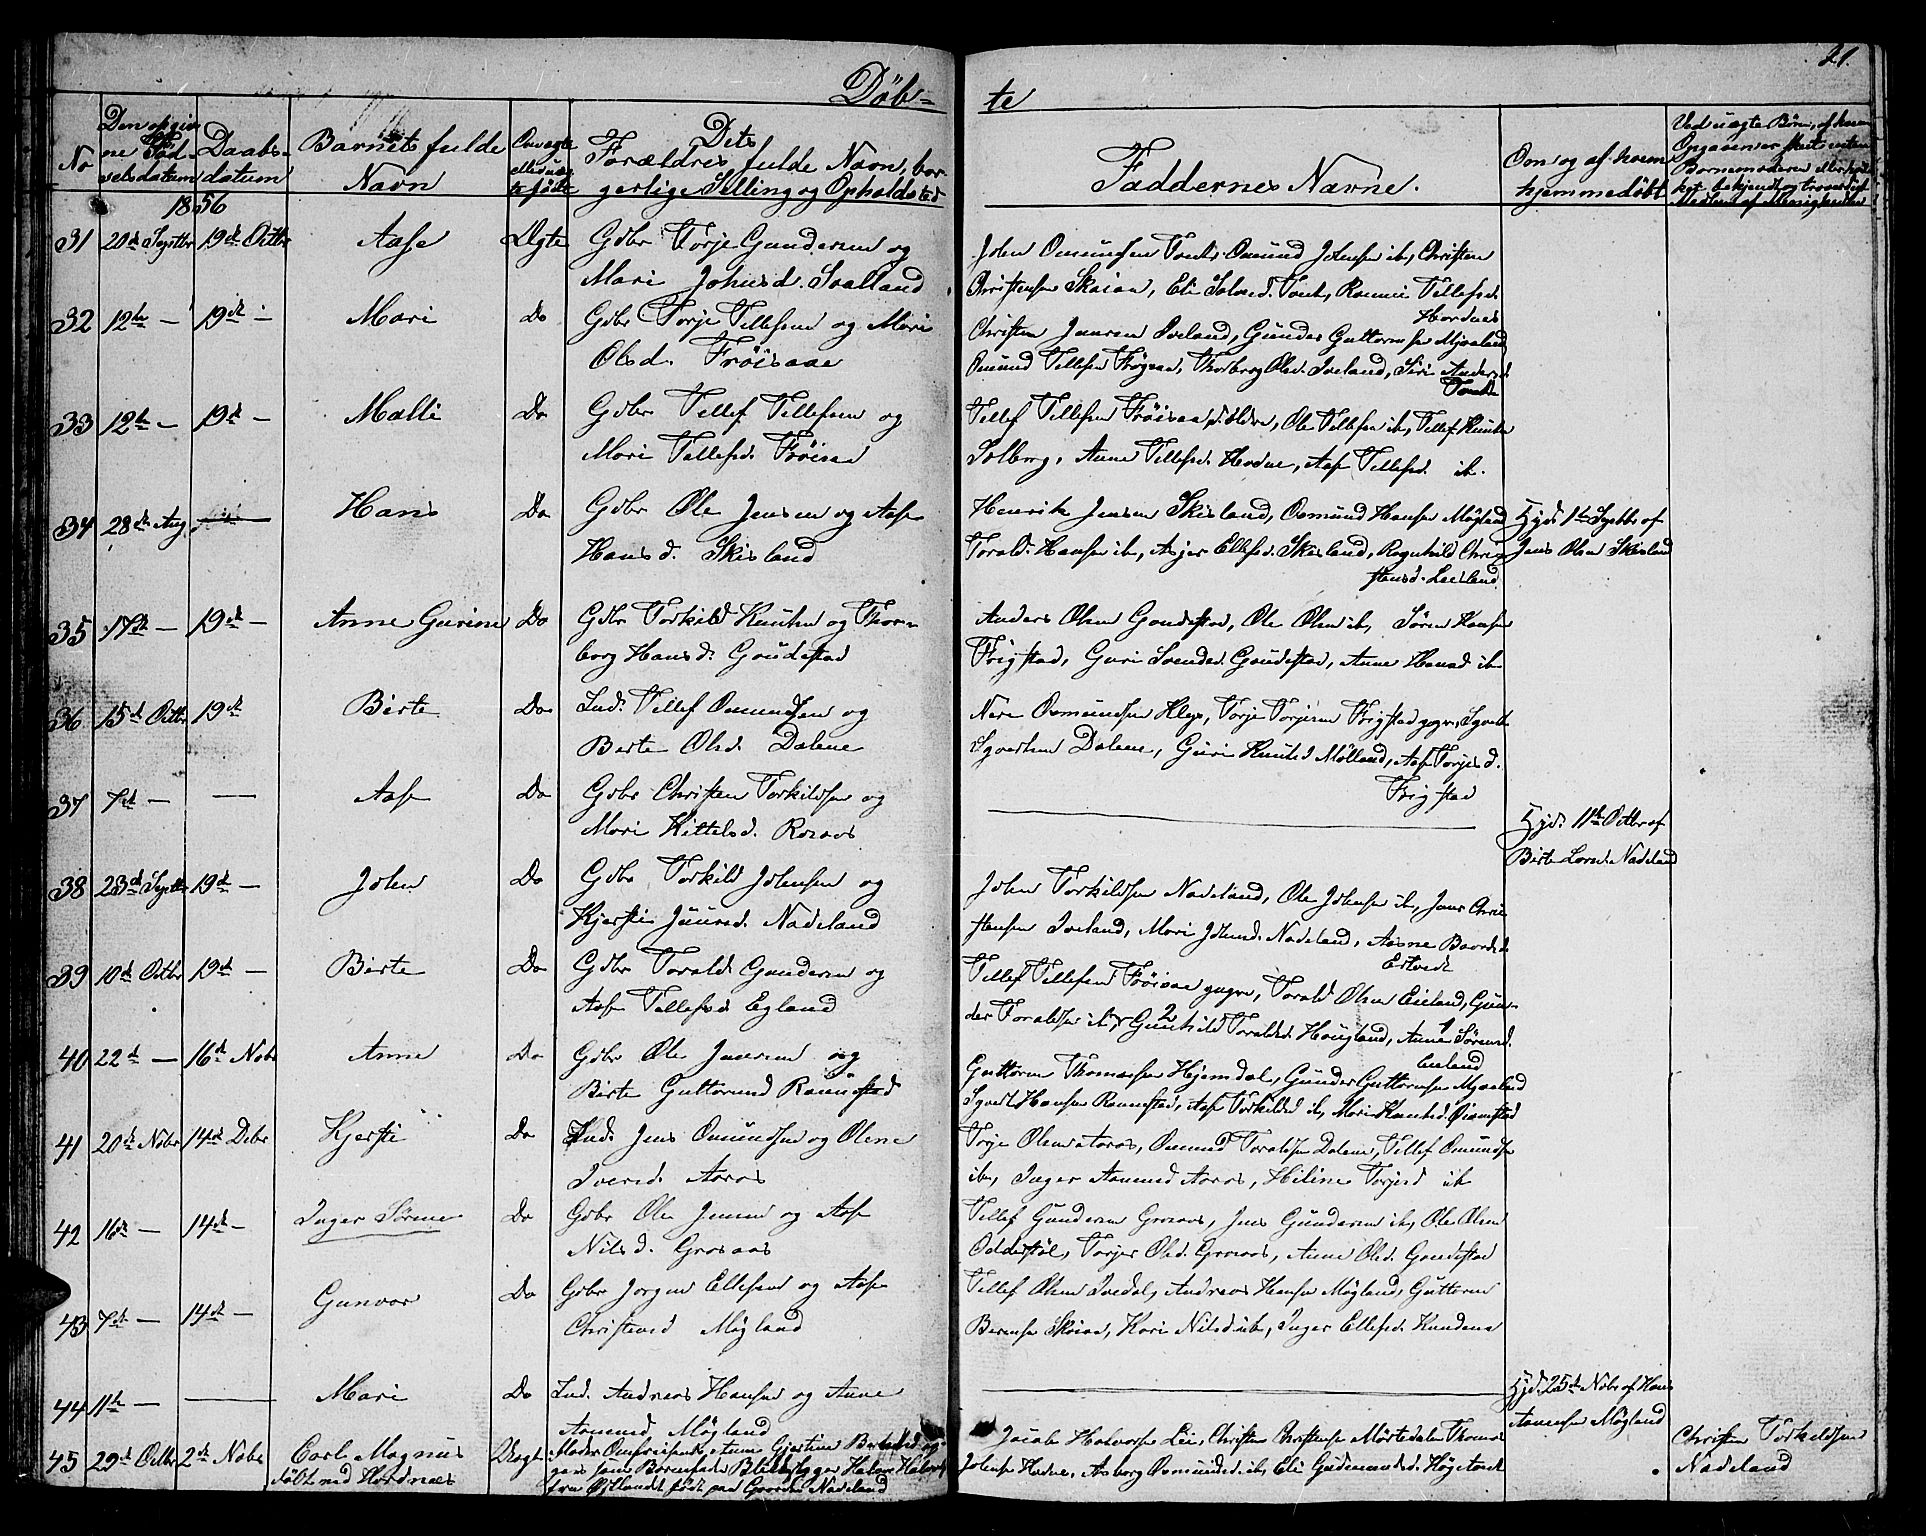 21.
Döb=
te
No
Den opgiv
ne Fød-
selsdatum
Daabs-
datum
Barnets fulde
Navn
Om ægte
eller uæg
te født
Dets
Forældres fulde Navn, bor
gerlige Stilling og Opholdsted
Faddernes Navne.
Om og af hvem
hjemmedøbt
Ved uægte Børn, af hvem
1856
31 20de Septbr 19de Octbr Aase Ægte Gdbr Torje Gundersen og
Mari Johnsd. Svalland
John Omundsen Tveit, Omund Johnsen ib, Christen
Christensen Skaiaa, Eli Salved. Tveit, Rønnei Tellefsd.
Hordnes
32 12te — 19de — Mari Do Gdbr Torje Tellefsen og Mari
Olsd. Frøisaae
Christen Jensen Iveland, Gunder Guttormsen Mjaaland
Omund Tellefsen Frøysaa, Thorborg Olsd. Iveland, Siri Andersd.
Tveit
33 12te — 19de — Malli Do Gdbr Tellef Tellefsen og
Mari Tellefsd. Frøisaa
Tellef Tellefsen Frøisaa d. Eldre, Ole Tellefsen ib, Tellef Knuts
Solberg, Anne Tellefsd. Hodne, Aase Tellefsd. ib.
34 28de Aug. Hans Do Gdbr Ole Jensen og Aase
Hansd. Skisland
Henrik Jensen Skisland, Osmund Hansen Møgland
Torald Hansen ib, Asjer Ellefsd. Skisland, Ragnhild Chri
stensd. Leisland
Hjd. 1te Septbr af
Jens Olsen Skisland
35 17de — 19de — Anne Gurine Do Gdbr Torkild Knutsen og Thor-
borg Hansd. Goudestad
Anders Olsen Goudestad, Ole Olsen ib, Søren Hansen
Frigstad, Guri Svendsd. Goudestad, Anne Hansd ib
36 15de Octbr 19de Birte Do Ind. Tellef Omundsen og
Berte Olsd. Dalene
Nere Osmundsen Kleps, Torje Torjesen Frigstad yngre, Syvert
Syvertsen Dalene, Guri Knutsd Mølland, Aase Torjesd.
Frigstad
37 7de — — Aase Do Gdbr Christen Torkildsen og
Mari Kittelsd. Rosaas
Hjd. 11te Octbr af
Birte Larsd. Nadeland
38 23de Septbr 19de — John Do Gdbr Torkild Johnsen og
Kjersti Jensd. Nadeland
John Torkildsen Nadeland, Ole Johnsen ib, Jens Chri
stensen Iveland, Mari Johnsd. Nadeland, Aasne Baardsd.
Ertveit
39 10de Octbr 19de — Birte Do Gdbr Torald Gundersen og
Aase Tellefsd Egland
Tellef Tellefsen Frøisaae yngre, Torald Olsen Eieland, Gun-
der Toraldsen ib, Gunhild Toraldsd. Hougland, Anne Sørensd.
Eieland
40 22de — 16de Nobr Anne Do Gdbr Ole Jensen og
Birte Guttormsd Rannestad
Guttorm Thomassen Hjemdal, Gunder Guttormsen Mjaaland
Syvert Hansen Rannestad, Aase Torkildsd ib, Mari Knutsd. Rannestad
41 20de Nobr 14de Debr Kjersti Do Ind. Jens Omundsen og Olene
Iversd. Aaraas
Torje Olsen Aaraas, Omund Toraldsen Dalene, Tellef Omundsen
ib, Inger Aanensd Aaraas, Heline Torjesd ib
42 16de — 14de — Inger Sørine Do Gdbr Ole Jensen og Aase
Nilsd. Grosaas
Tellef Gundersen Grosaas, Jens Gundersen ib, Ole Olsen
Oddestøl, Torjer Olsd. Grosaas, Anne Olsd. Goudestad
43 7de — 14de — Gunvor Do Gdbr Jørgen Ellefsen og Aase
Christensd Møgland
Tellef Olsen Ivedal, Andreas Hansen Møgland, Guttorm
Berensen Skaiaa, Kari Nilsd ib, Inger Ellefsd. Kundena
44 11te — — Mari Do Ind. Andreas Hansen og Anne
Aanensd Møgland
Hjd. 25de Nobr af Hans
Aanensen Møgland
45 29de Octbr 2de Nobr Carl Magnus
døbt ved Hordnæs
Uægt Moder Anne Gjertine
født paa Gaarden Nadeland
Jacob Halvorsen Lie, Christen Christensen Mørtedalen Thomas
Johnsen Hodne, Asborg Osmundsd. ib, Eli Gudmundsd. Høgetveit
Christen Torkildsen
Nadeland